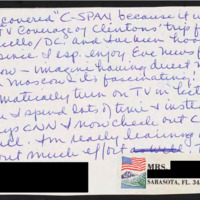 covered "C-SPAN because it w
TV Coverage of Clinton's trip f
cello/DC! and has been he
since. I esp. enjoy Eve News f
ow - imagine having direct N
n Moscow its fascinating!
matically turn on TV in bet
u & spend lots of time & inste
ys CNN & now check out C
nce. I'm really learning a
out much effort
MRS.
SARASOTA, FL 34